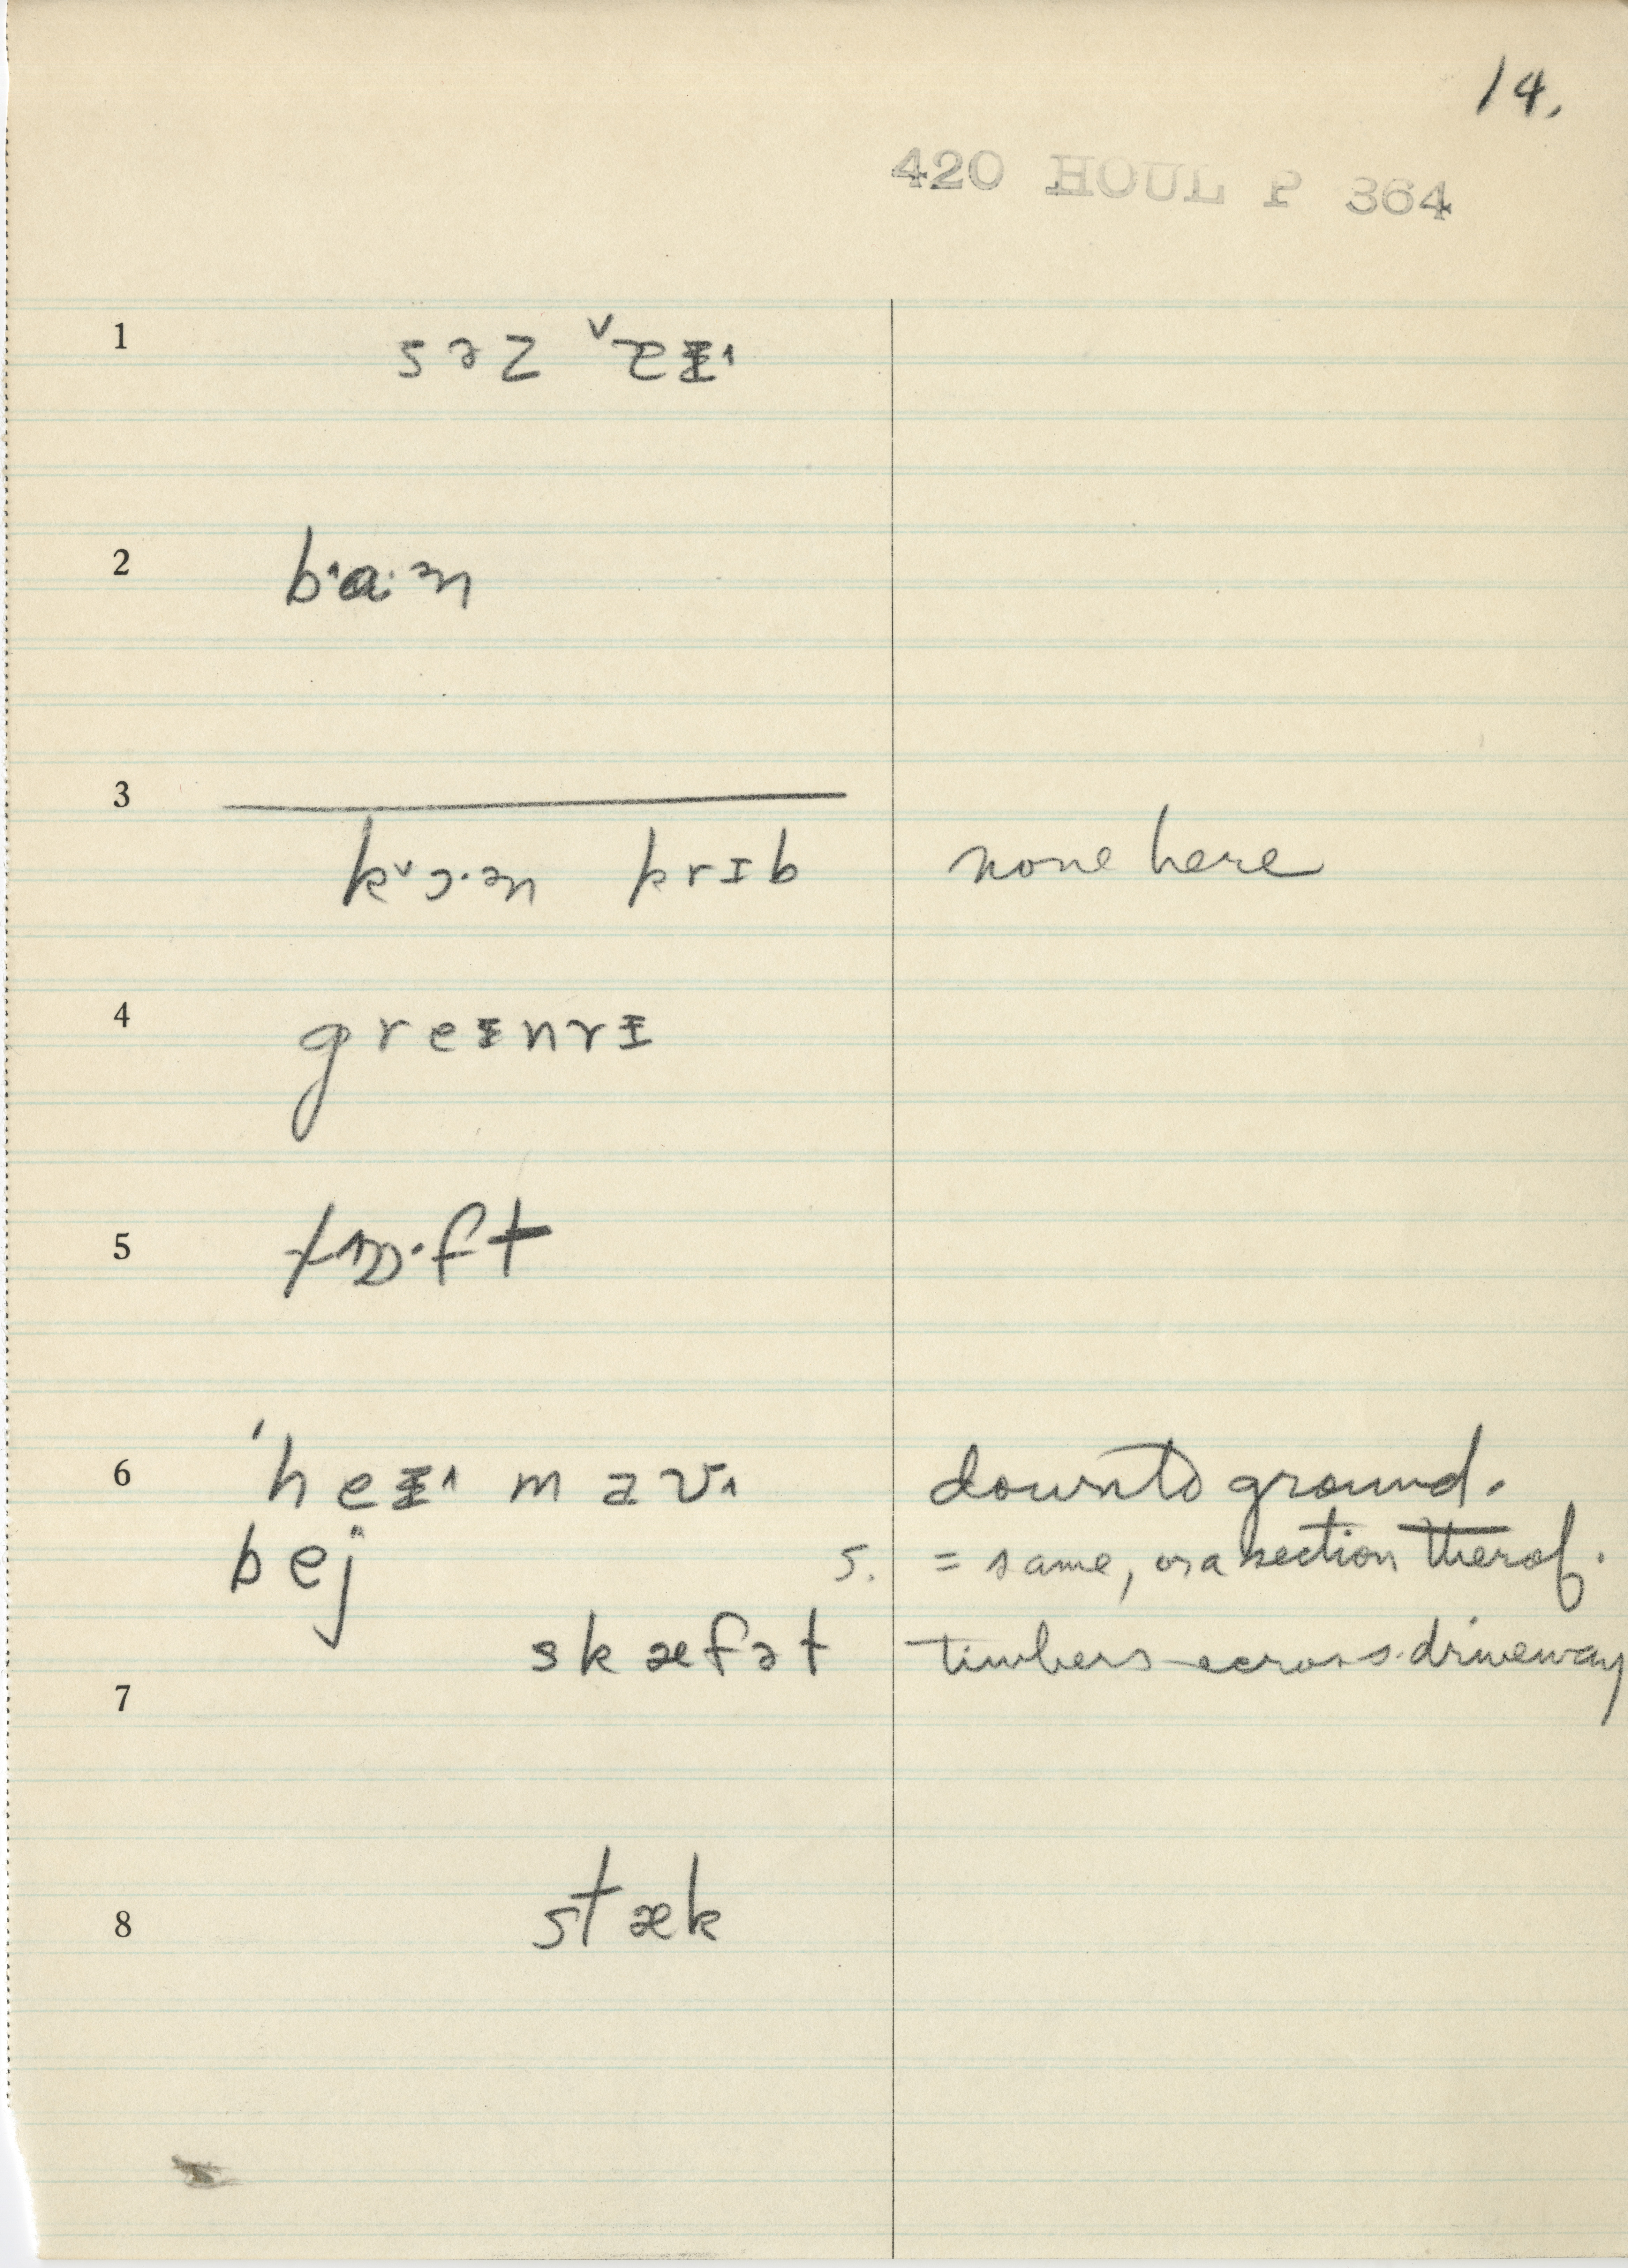 14.
420 HOUL P 364
1 səz
2 ba·ᵊn
3
kᵛɔ·ᵊn krɪb none here
4 greᵻnrᵻ
5 lɒ·ft
6 ˈheᵻ^ maʊ down to ground.
bej s. = same, or a section therof.
skæfət timbers across driveway
7
8 stæk